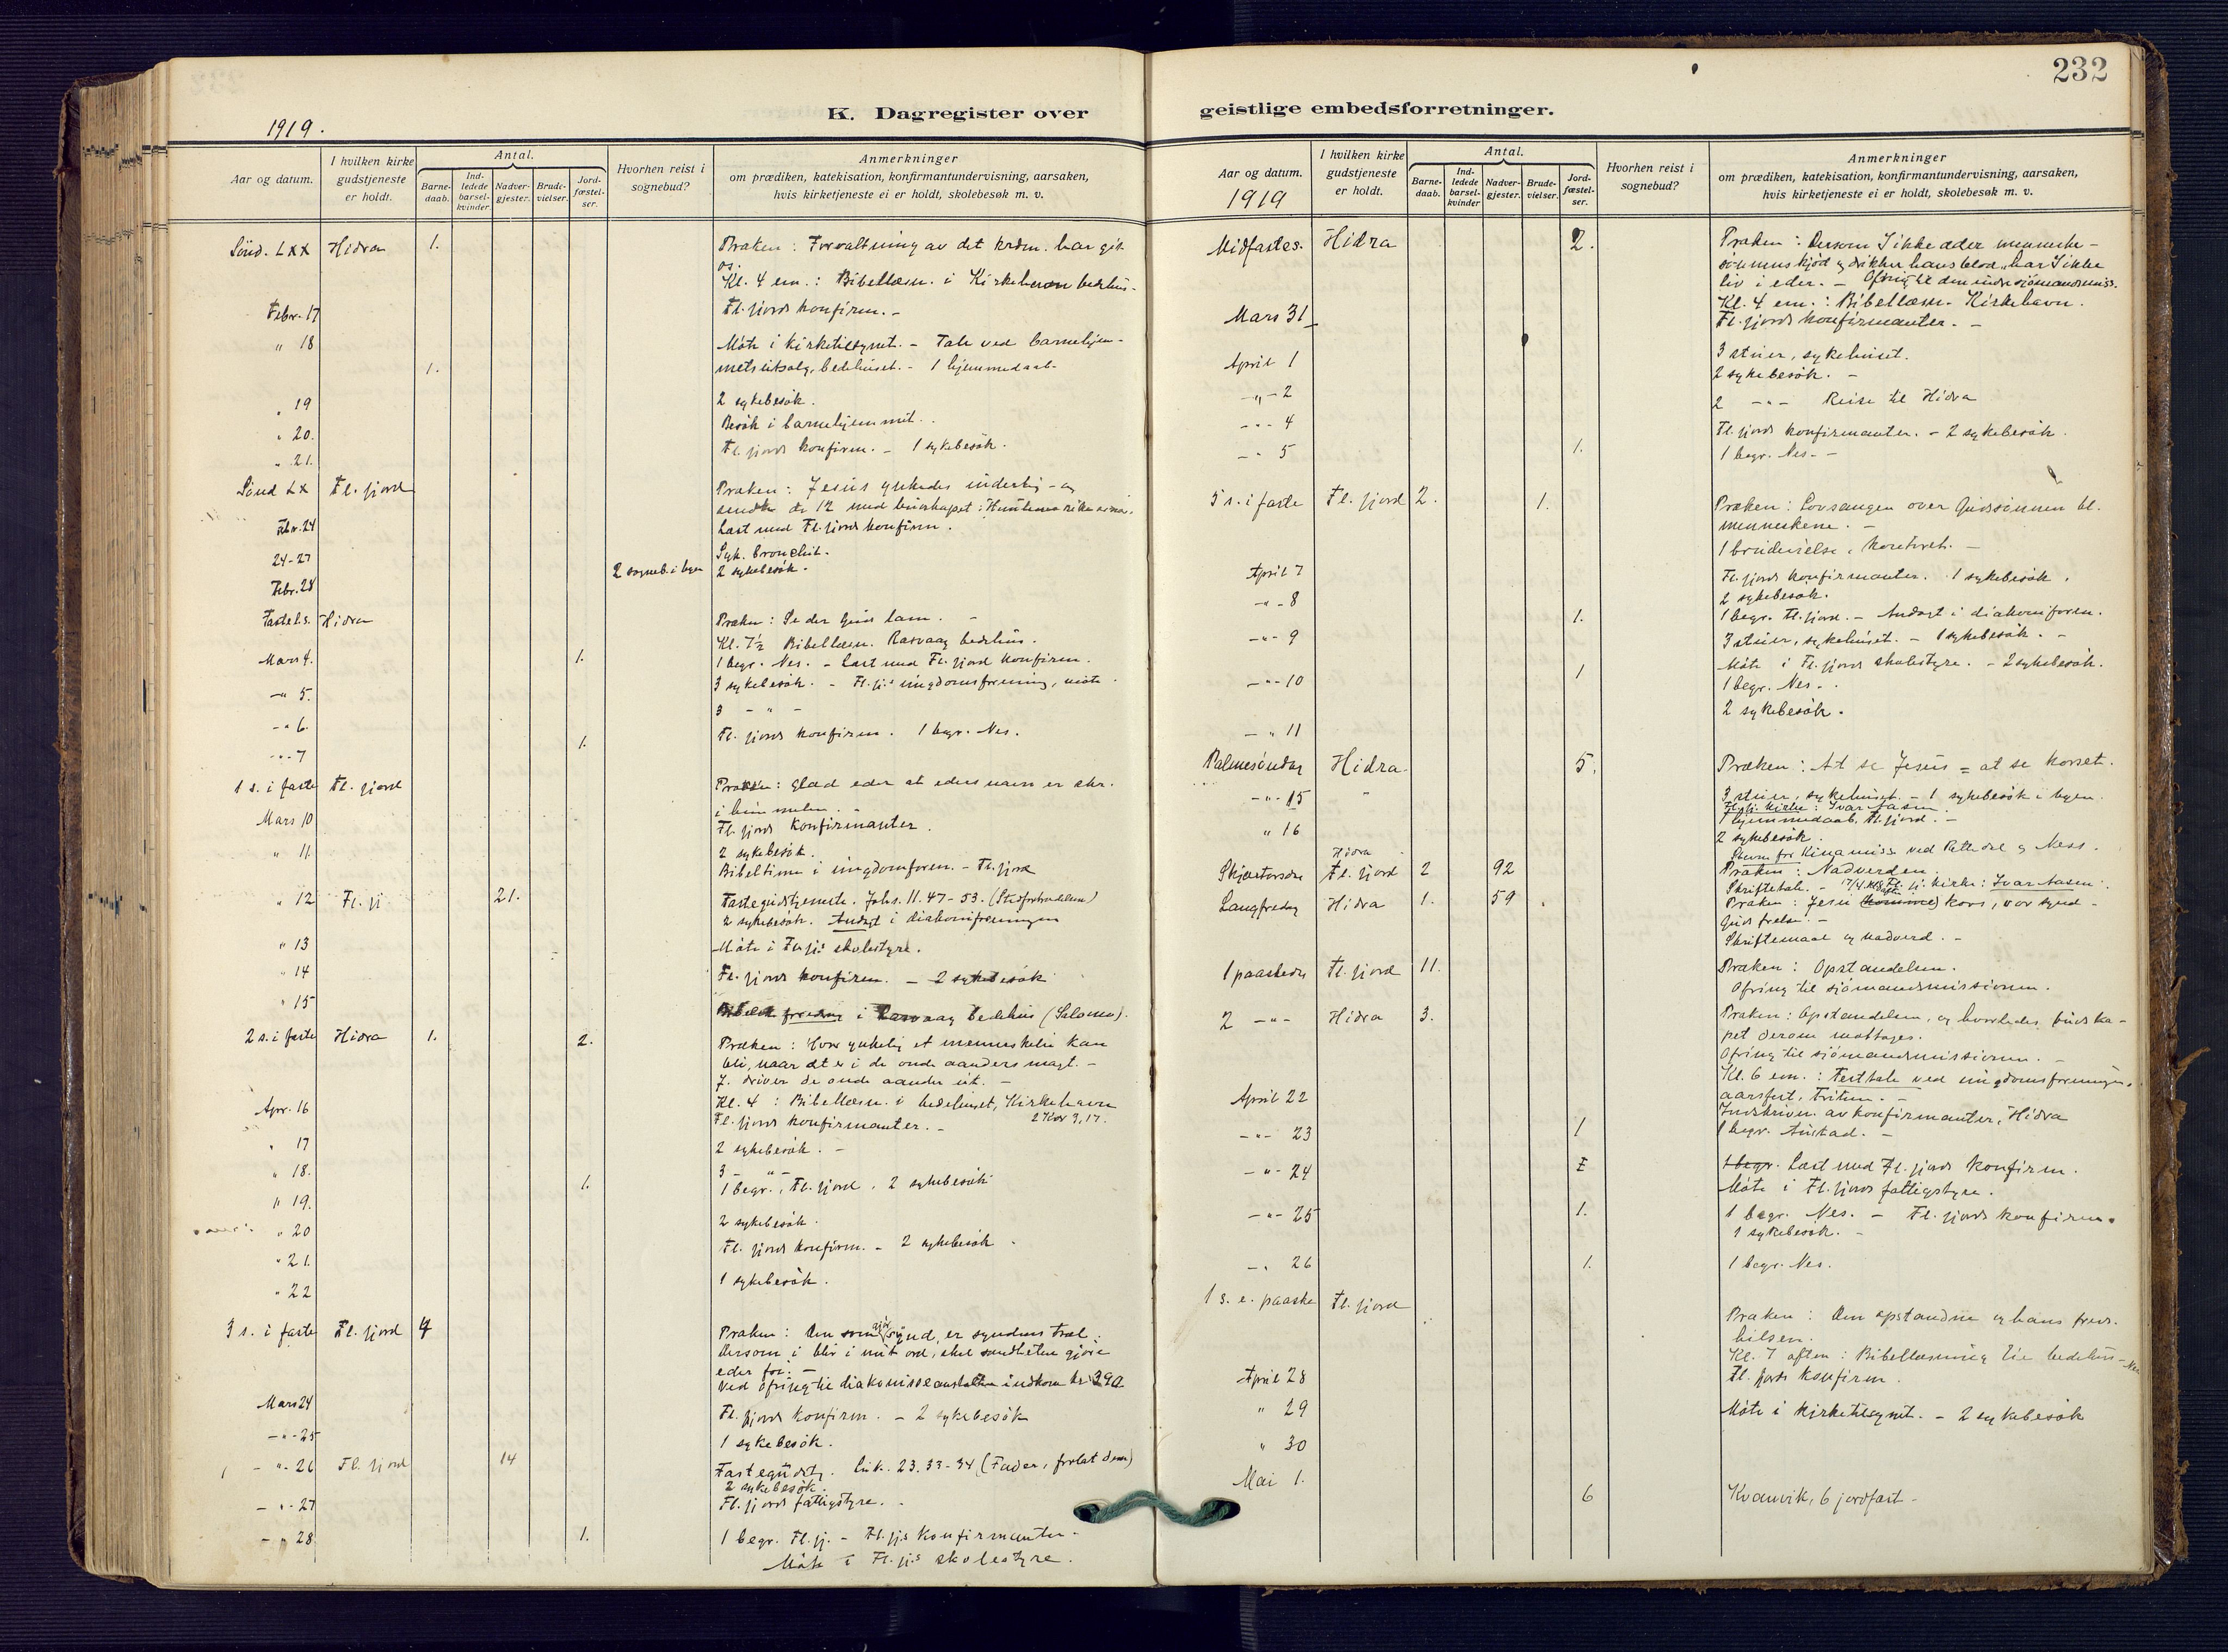 232
K. Dagregister over
1919.
Aar og datum.
I hvilken kirke
gudstjeneste
er holdt.
Antal.
Barne-
daab.
Ind-
ledede
barsel-
kvinder
Nadver-
gjester.
Brude-
vielser.
Jord-
fæstel-
ser.
Hvorhen reist i
sognebud?
Anmerkninger
om prædiken, katekisation, konfirmantundervisning, aarsaken,
hvis kirketjeneste ei er holdt, skolebesøk m. v.
Sönd. LXX Hidra 1. Præken: Forvaltning av det kr.dm. har git
os.
Kl. 4 em.: Bibellæsn. i Kirkehavn bedehus.
Febr. 17 Fl.fjords konfirm. -
" 18 Möte i kirketilsynet. - Tale ved barnehjem-
1. mets utsalg, bedehuset. - 1 hjemmedaab.
" 19 2 sykebesök.
" 20. Besök i barnehjemmet.
" 21. Fl.fjords konfirm. - 1 sykebesök.
Sönd LX Fl.fjord Præken: Jesus ynkedes inderlig - og
sendte de 12 med budskapet: Himlenes rike
Febr. 24 Læst med Fl.fjords konfirm.
24-27 Syk. bronchit.
Febr. 28 2 sogneb. i byen 2 sykebesök.
Fastel.s. Hidra Præken: Se der Guds lam. -
Kl. 7½ Bibellæsn. Rasvaag bedehus.
Mars 4. 1. 1 begr. Nes. - Læst med Fl.fjord konfirm.
-"- 5. 3 sykebesök. - Fl.fj.s ungdomsforening, möte.
-"- 6. 3 - " -
-"- 7 1. Fl.fjords konfirm. 1 begr. Nes.
1 s. i faste Fl.fjord Præken: Glæd eder at eders navn er skr.
i himmelen. -
Mars 10 Fl.fjords konfirmanter.
" 11. 2 sykebesök.
Bibeltime i ungdomsforen. - Fl.fjord
" 12 Fl.fj 21. Fastegudstjeneste. Johs. 11. 47-53. (Stedfortrædelsen)
2 sykebesök. Andagt i diakoniforeningen
" 13 Möte i Fl.fj.s skolestyre.
" 14 Fl.fjords konfirm. - 2 sykebesök
" 15 i Rasvaag bedehus (Salomo).
2 s. i faste Hidra 1. 2. Præken: Hvor ynkelig et menneske kan
bli, naar det er i de onde aanders magt. -
J. driver de onde aander ut. -
Kl. 4: Bibellæsn. i bedehuset, Kirkehavn
2 Kor 3,17.
Apr. 16 Fl.fjords konfirmanter. -
" 17 2 sykebesök. -
" 18. 3 - " -
" 19. 1. 1 begr., Fl.fjord. 2 sykebesök
" 20 2 sykebesök.
" 21. Fl.fjords konfirm. - 2 sykebesök.
" 22 1 sykebesök.
3 s. i faste Fl.fjord 4 Præken: Den som gjör synd, er syndens træl.
Dersom i blir i mit ord, skal sandheten gjöre
eder fri. -
Ved ofring til diakonisseanstalten indkom kr 390
Mars 24 Fl.fjords konfirm. - 2 sykebesök
-"- 25 1 sykebesök.
-"- 26 Fl.fjord 14 Fastegudstj. Luk. 23. 33-34 (Fader, forlat dem)
2 sykebesök.
-"- 27 Fl.fjords fattigstyre. -
-"- 28 1. 1 begr. Fl.fj. - Fl.fj.s konfirmanter -
Möte i Fl.fj.s skolestyre.
geistlige embedsforretninger.
Aar og datum.
1919
I hvilken kirke
gudstjeneste
er holdt.
Antal.
Barne-
daab.
Ind-
ledede
barsel-
kvinder
Nadver-
gjester.
Brude-
vielser.
Jord-
fæstel-
ser.
Hvorhen reist i
sognebud?
Anmerkninger
om prædiken, katekisation, konfirmantundervisning, aarsaken,
hvis kirketjeneste ei er holdt, skolebesøk m. v.
Midfastes. Hidra 2. Præken: Dersom I ikke æder menneske-
sönnens kjöd og drikker hans blod, har I ikke
liv i eder. - Ofring til den indre sjömandsmiss.
Kl. 4 em.: Bibellæsn. Kirkehavn.
Mars 31 Fl.fjords konfirmanter. -
April 1 3 stuer, sykehuset.
2 sykebesök. -
-"- 2 2 -"- Reise til Hidra
-"- 4 Fl.fjords konfirmanter. - 2 sykebesök.
-"- 5 1. 1 begr. Nes. -
5 s. i faste Fl.fjord 2. 1. Præken: Lovsangen over Gudssönnen bl.
menneskene. -
1 brudevielse, kontoret. -
April 7 Fl.fjords konfirmanter. 1 sykebesök.
-"- 8 2 sykebesök.
1. 1 begr. Fl.fjord. - Andagt i diakoniforen.
-"- 9 3 stuer, sykehuset. - 1 sykebesök. -
Möte i Fl.fjords skolestyre. - 2 sykebesök.
-"- 10 1 1 begr. Nes. -
-"- 11 2 sykebesök.
Palmesöndag Hidra 5. Præken: At se Jesus = at se korset.
-"- 15 " 3 stuer, sykehuset. - 1 sykebesök i byen.
Fl.fj. kirke: Ivar Aasen
1 hjemmedaab, Fl.fjord. -
" 16 2 sykebesök.
Stevne for Kinamiss ved Rettedal og Ness.
Skjærtorsdag Hidra Fl.fjord 2 92 Præken: Nadverden.
Skriftetale. - Fl.fj. kirke: Ivar Aasen.
Langfredag Hidra 1. 59 Præken: Jesu kors, vor synd -
Guds frelse. -
Skriftemaal og nadverd. -
1 paaskedag Fl.fjord 11. Præken: Opstandelsen.
Ofring til sjömandsmissionen.
2 -"- Hidra 3. Præken: Opstandelsen, og hvorledes budska-
pet derom mottages.
Ofring til sjömandsmissionen. -
Kl. 6 em.: Festtale ved ungdomsforeningens
aarsfest, -
April 22 Indskriven. av konfirmanter, Hidra
-"- 23 1 1 begr. Austad. -
-"- 24 1 begr. Læst med Fl.fjords konfirm.
Möte i Fl.fjords fattigstyre.
-"- 25 1. 1 begr. Nes. - Fl.fjords konfirm.
1 sykebesök. -
-"- 26 1. 1 begr. Nes.
1 s. e. paaske Fl.fjord Præken: Den opstandne og hans freds-
hilsen.
Kl. 7 aften: Bibellæsning bedehus - Nes
April 28 Fl.fjords konfirm.
" 29 Möte i kirketilsynet. - 2 sykebesök
" 30
Mai 1. 6 Kvanvik, 6 jordfæst -